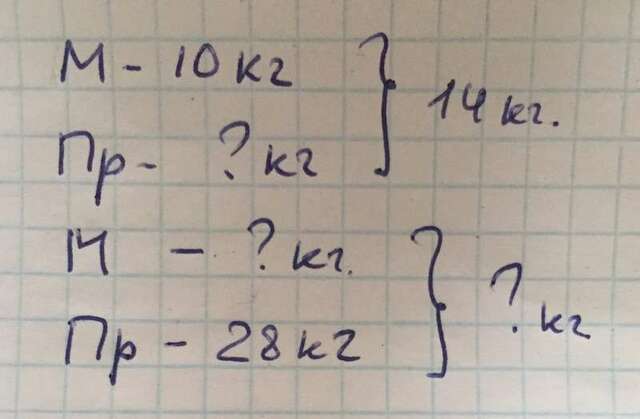 М - 10 кг
Пр - ? кг
14 кг.
М - ? кг.
Пр - 28 кг
? кг